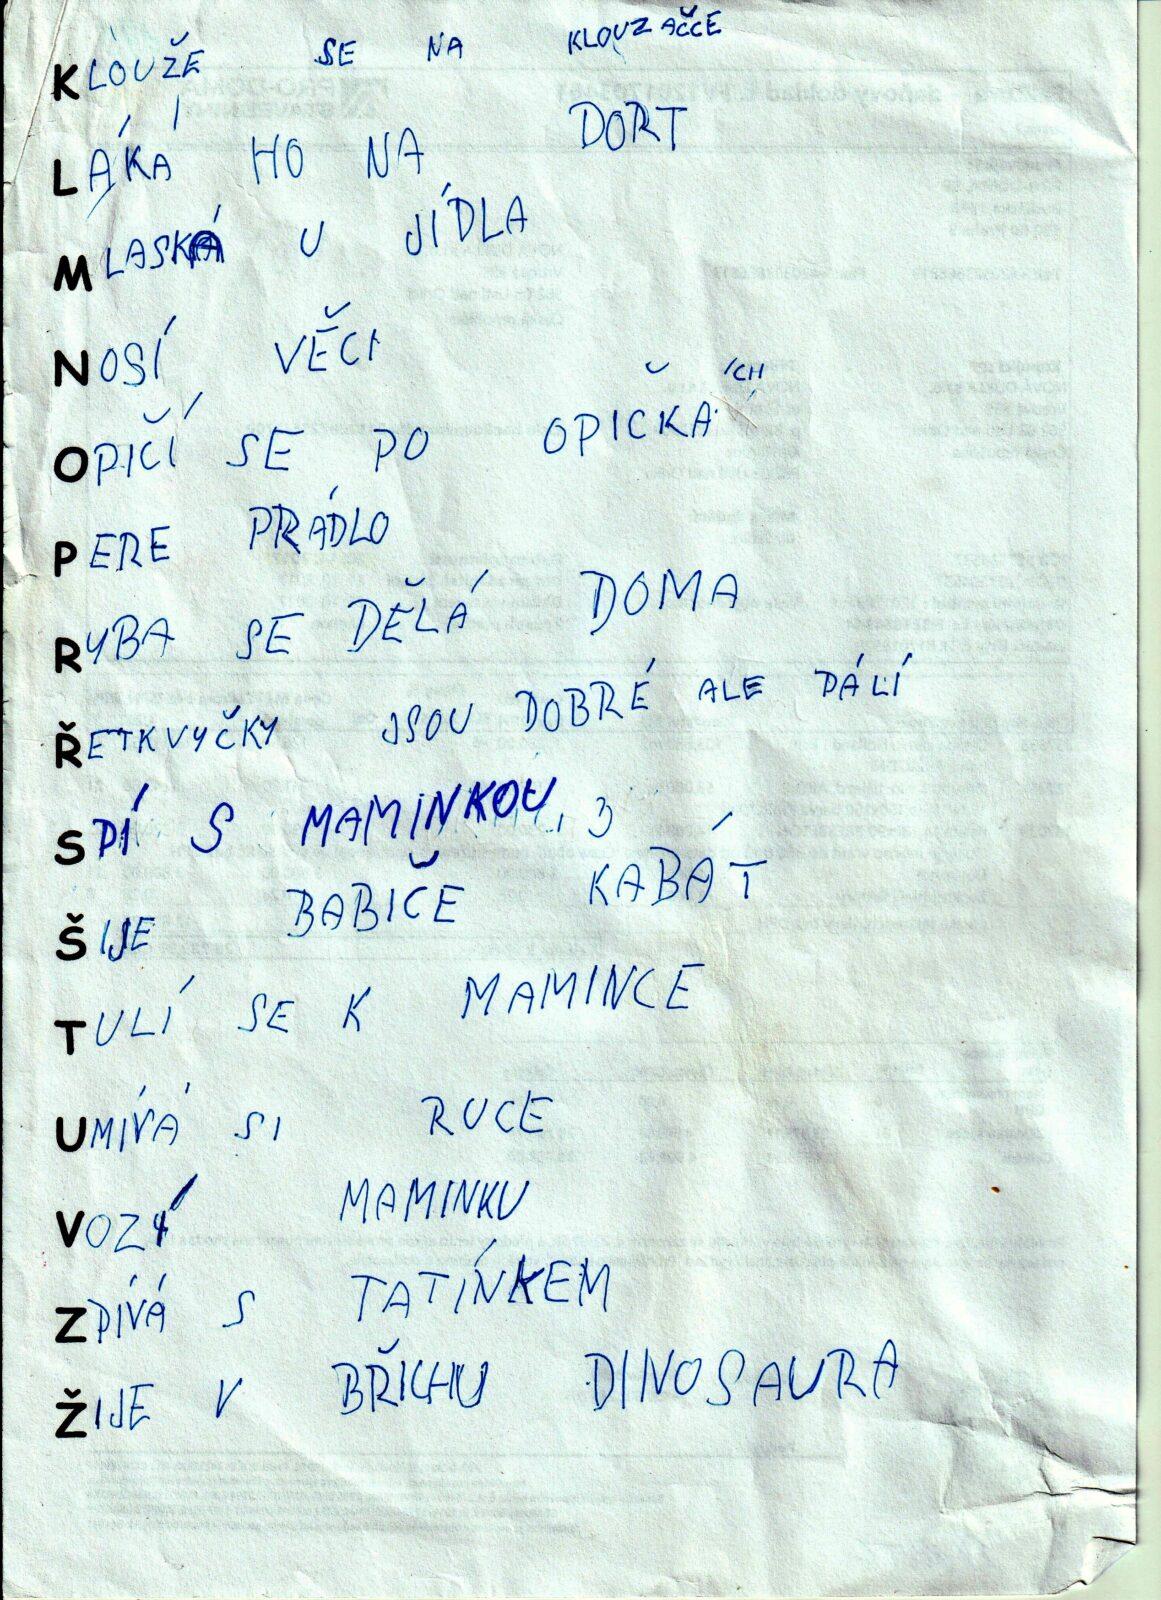 KLOUŽE SE NA KLOUZAČCE
LÁKÁ HO NA DORT
MLASKÁ U JÍDLA
NOSÍ VĚCI
OPIČÍ SE PO OPIČKÁCH
PERE PRÁDLO
RYBA SE DĚLÁ DOMA
ŘETKVYČKY JSOU DOBRÉ ALE PÁLÍ
SPÍ S MAMINKOU
ŠIJE BABIČE KABÁT
TULÍ SE K MAMINCE
UMÍVÁ SI RUCE
VOZÍ MAMINKU
ZPÍVÁ S TATÍNKEM
ŽIJE V BŘICHU DINOSAURA